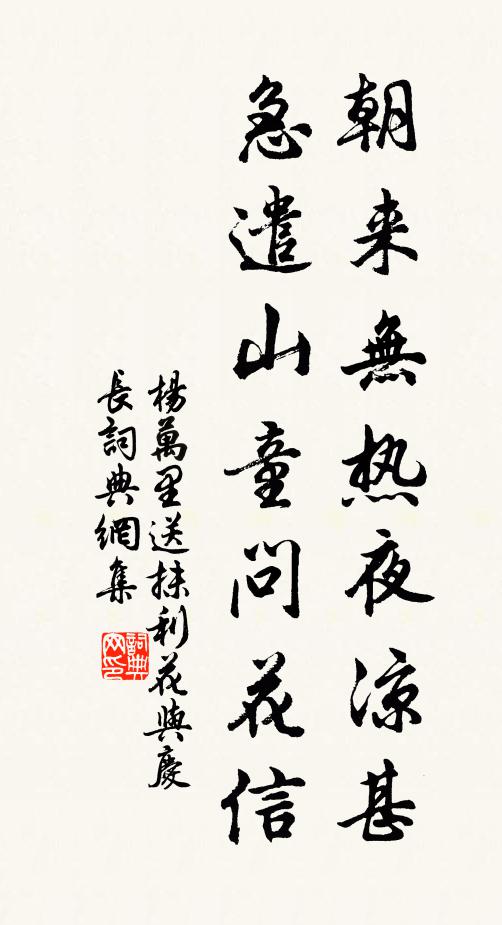 朝来無热夜涼甚
急遣山童問花信
楊萬里送抹利花與慶
長詞典網集
詞典网印